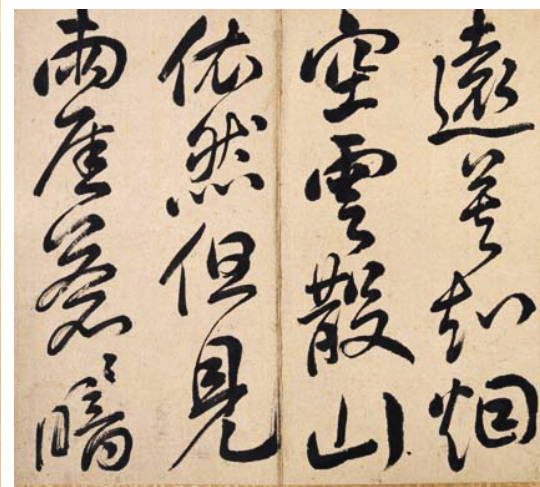 遠莫知烟
空雲散山
依然但見
兩崖蒼〻暗